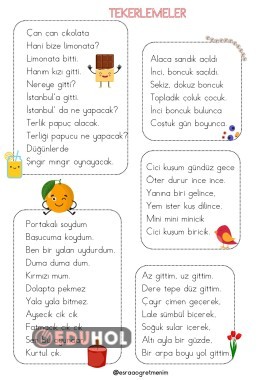 TEKERLEMELER
Çan can cikolata
Hani bize limonata?
Limonata bitti.
Hanım kızı gitti.
Nereye gitti?
İstanbul'a gitti.
İstanbul' da ne yapacak?
Terlik papuc alacak.
Terliği papucu ne yapacak?
Düğünlerde
Şıngır mıngır oynayacak.
Alaca sandık acıldı
İnci, boncuk sacıldı.
Sekiz, dokuz boncuk
Topladık coluk cocuk.
İnci boncuk bulunca
Costuk gün boyunca.
Cici kuşum gündüz gece
Öter durur ince ince.
Yanına biri gelince,
Yem ister kus dilince.
Mini mini minicik
Cici kuşum biricik.
Portakalı soydum
Başucuma koydum.
Ben bir yalan uydurdum.
Duma duma dum.
Kırmızı mum.
Dolapta pekmez
Yala yala bitmez.
Ayşecik cik cik
Fatmacık cık cık
Sen bu oyundan
Kurtul cık.
Az gittim, uz gittim.
Dere tepe düz gittim.
Çayır cimen gecerek,
Lale sümbül bicerek.
Soğuk sular icerek.
Altı ayla bir güzde.
Bir arpa boyu yol gittim
@esraaogretmenim